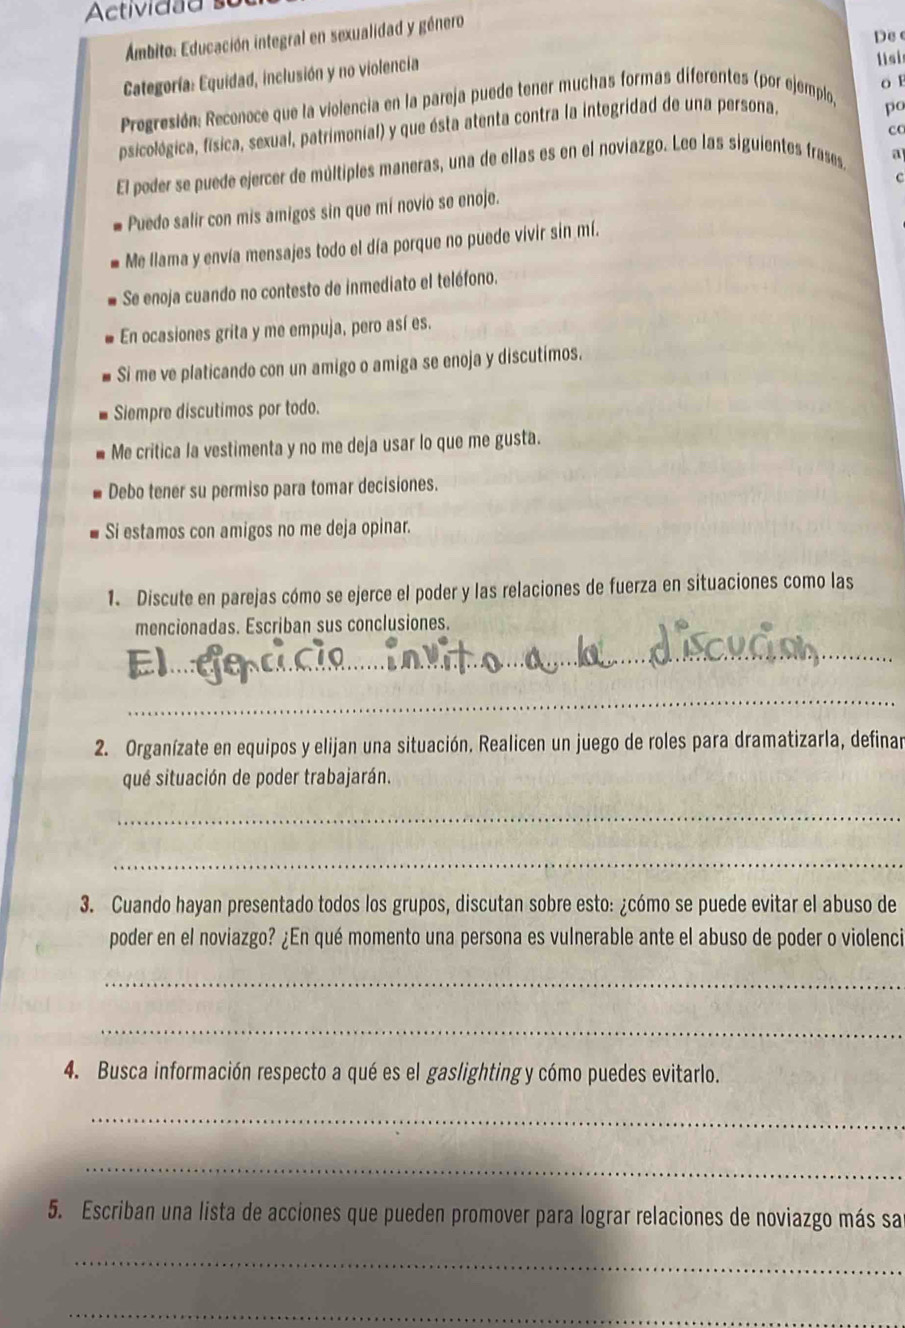 Actividad
Ámbito: Educación integral en sexualidad y género
Categoría: Equidad, inclusión y no violencia
Progresión: Reconoce que la violencia en la pareja puede tener muchas formas diferentes (por ejemplo,
psicológica, física, sexual, patrimonial) y que ésta atenta contra la integridad de una persona.
El poder se puede ejercer de múltiples maneras, una de ellas es en el noviazgo. Lee las siguientes frases.
▪ Puedo salir con mis amigos sin que mi novio se enoje.
▪ Me llama y envía mensajes todo el día porque no puede vivir sin mí.
▪ Se enoja cuando no contesto de inmediato el teléfono.
▪ En ocasiones grita y me empuja, pero así es.
▪ Si me ve platicando con un amigo o amiga se enoja y discutimos.
▪ Siempre discutimos por todo.
▪ Me critica la vestimenta y no me deja usar lo que me gusta.
▪ Debo tener su permiso para tomar decisiones.
▪ Si estamos con amigos no me deja opinar.
1. Discute en parejas cómo se ejerce el poder y las relaciones de fuerza en situaciones como las
mencionadas. Escriban sus conclusiones.
El ejercicio invito a la discución
2. Organízate en equipos y elijan una situación. Realicen un juego de roles para dramatizarla, definan
qué situación de poder trabajarán.
3. Cuando hayan presentado todos los grupos, discutan sobre esto: ¿cómo se puede evitar el abuso de
poder en el noviazgo? ¿En qué momento una persona es vulnerable ante el abuso de poder o violenci
4. Busca información respecto a qué es el gaslighting y cómo puedes evitarlo.
5. Escriban una lista de acciones que pueden promover para lograr relaciones de noviazgo más sa
De
lisi
o
po
co
a
c